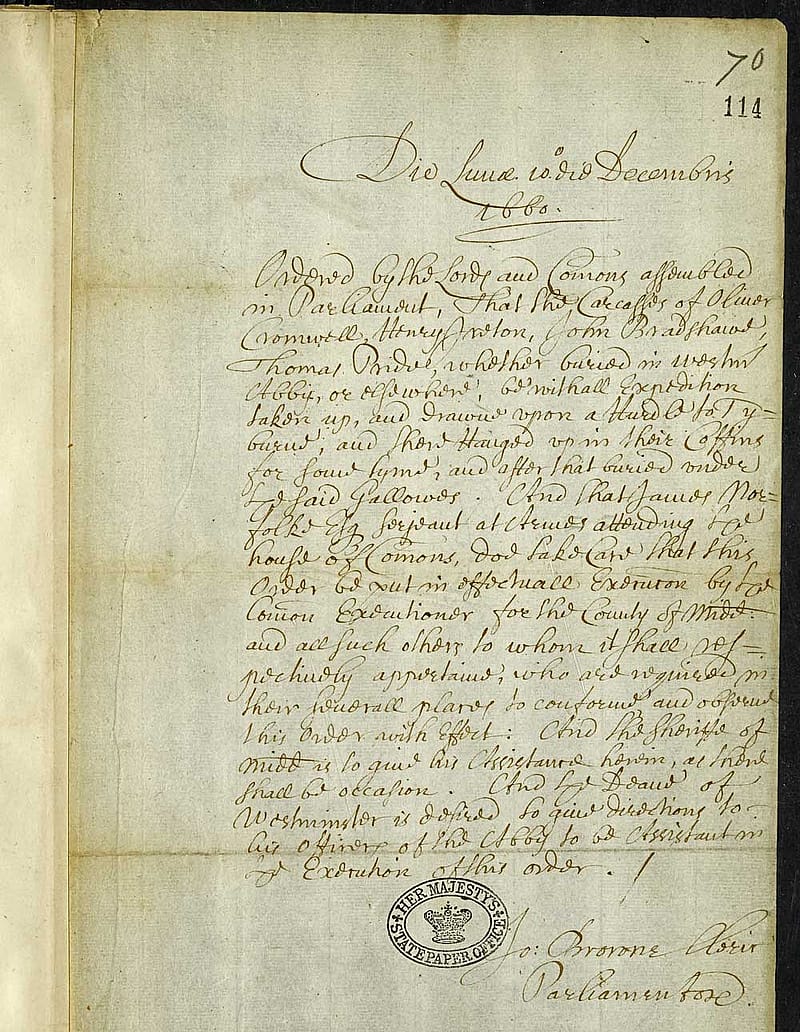 70
114
Die Lunæ 10º die Decembris
1660.
Ordered by the Lords and Com̄ons assembled
in Parliament, That the Carcasses of Oliver
Cromwell, Henry Ireton, John Bradshawe,
Thomas Pride, whether buried in Westmr
Abby, or elsewhere, be withall Expedition
taken up, and drawne upon a Hurdle to Ty=
burne, and there Hanged up in their Coffins
for some tyme, and after that buried under
ye said Gallowes. And that James Nor=
folke Esq Serjeant at Armes attending ye
house of Com̄ons, doe take Care that this
Order be put in effectuall Execuc̄on by ye
Com̄on Executioner for the County of Midd:
and all such others to whom it shall res=
pectively appertaine, who are required in
their severall places to conforme and observe
this Order with Effect: And the Sheriffe of
Midd is to give his Assistance herein, as there
shall be occasion. And ye Deane of
Westminster is desired to give directions to
his Officers of the Abby to be Assistant in
ye Execution of this order. /
HER MAJESTY'S
STATE PAPER OFFICE
Jo: Browne Cleric
Parliamentorɛ.